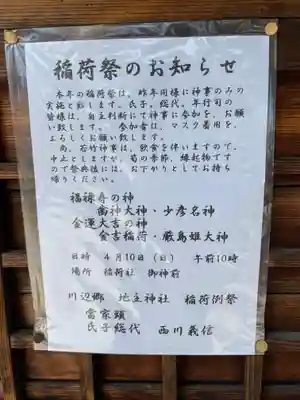 稲荷祭のお知らせ
本年の稲荷祭は、昨年同様に神事のみの
実施と致します。氏子、総代、年行司の
皆様は、自主判断にて神事に参加を、お願
い致します。 参加者は、マスク着用を、
よろしくお願い致します。
尚、若竹神事は、飲食を伴いますので、
中止としますが、筍の季節、縁起物です
ので祭典後には、お下がりとしてお持ち
帰りください。
福禄寿の神
大神・少彦名神
金運大吉の神
稲荷・厳島姫大神
日時 4月10日(日) 午前10時
場所 稲荷社 御神前
川辺郷 地主神社 稲荷例祭
當家頭
氏子総代 西川義信